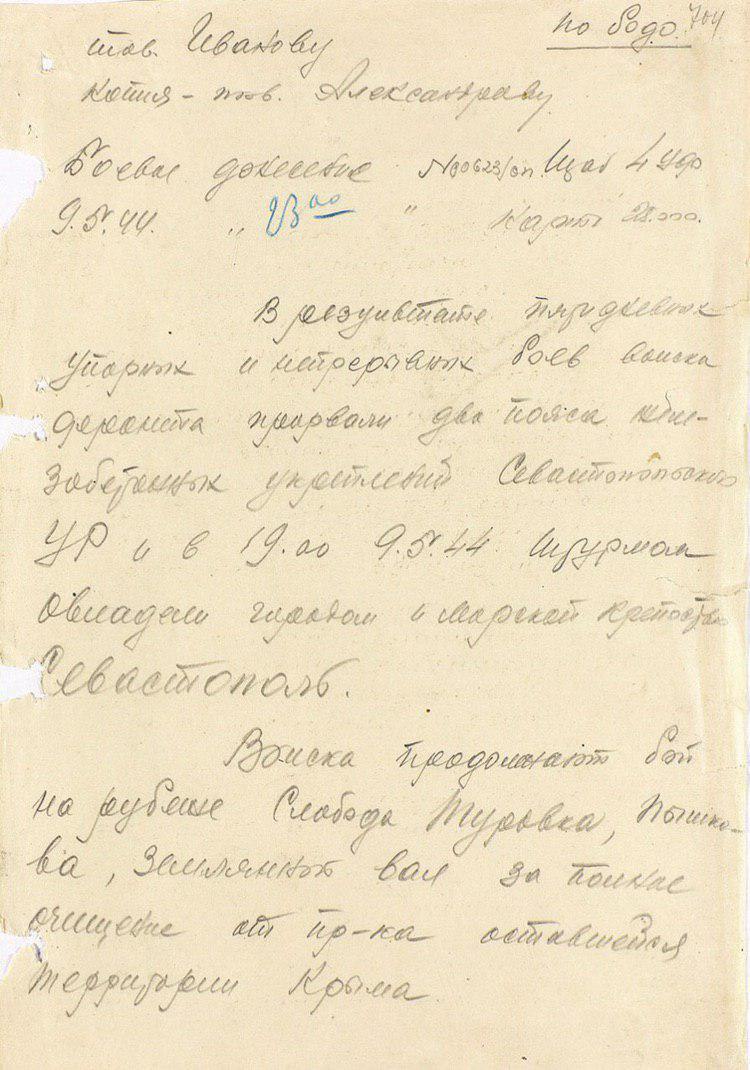 по бодо. 704
тов. Иванову
копия – тов. Александрову
Боевое донесение №00623/оп. Штаб 4 Уфр
9.5.44. „ 23 00 " Карта
В результате пятидневных
упорных и непрерывных боев войска
фронта прорвали два пояса желе-
зобетонных укреплений Севастопольского
УР и в 19.00 9.5.44 штурмом
овладели городом и морской крепостью
Севастополь.
Войска продолжают бой
на рубеже Слобода Туровка, Пышко-
ва, Земляной вал за полное
очищение от пр-ка оставшейся
территории Крыма